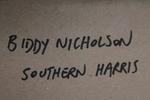 BIDDY NICHOLSON
SOUTHERN HARRIS